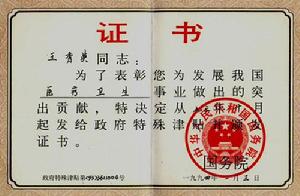 证 书
王秀英 同志：
为了表彰您为发展我国
医药卫生 事业做出的突
出贡献，特决定从 年 月
起发给政府特殊津贴并颁发
证书。
政府特殊津贴第 号
中华人民共和国国务院
国务院
一九九 年 月 日